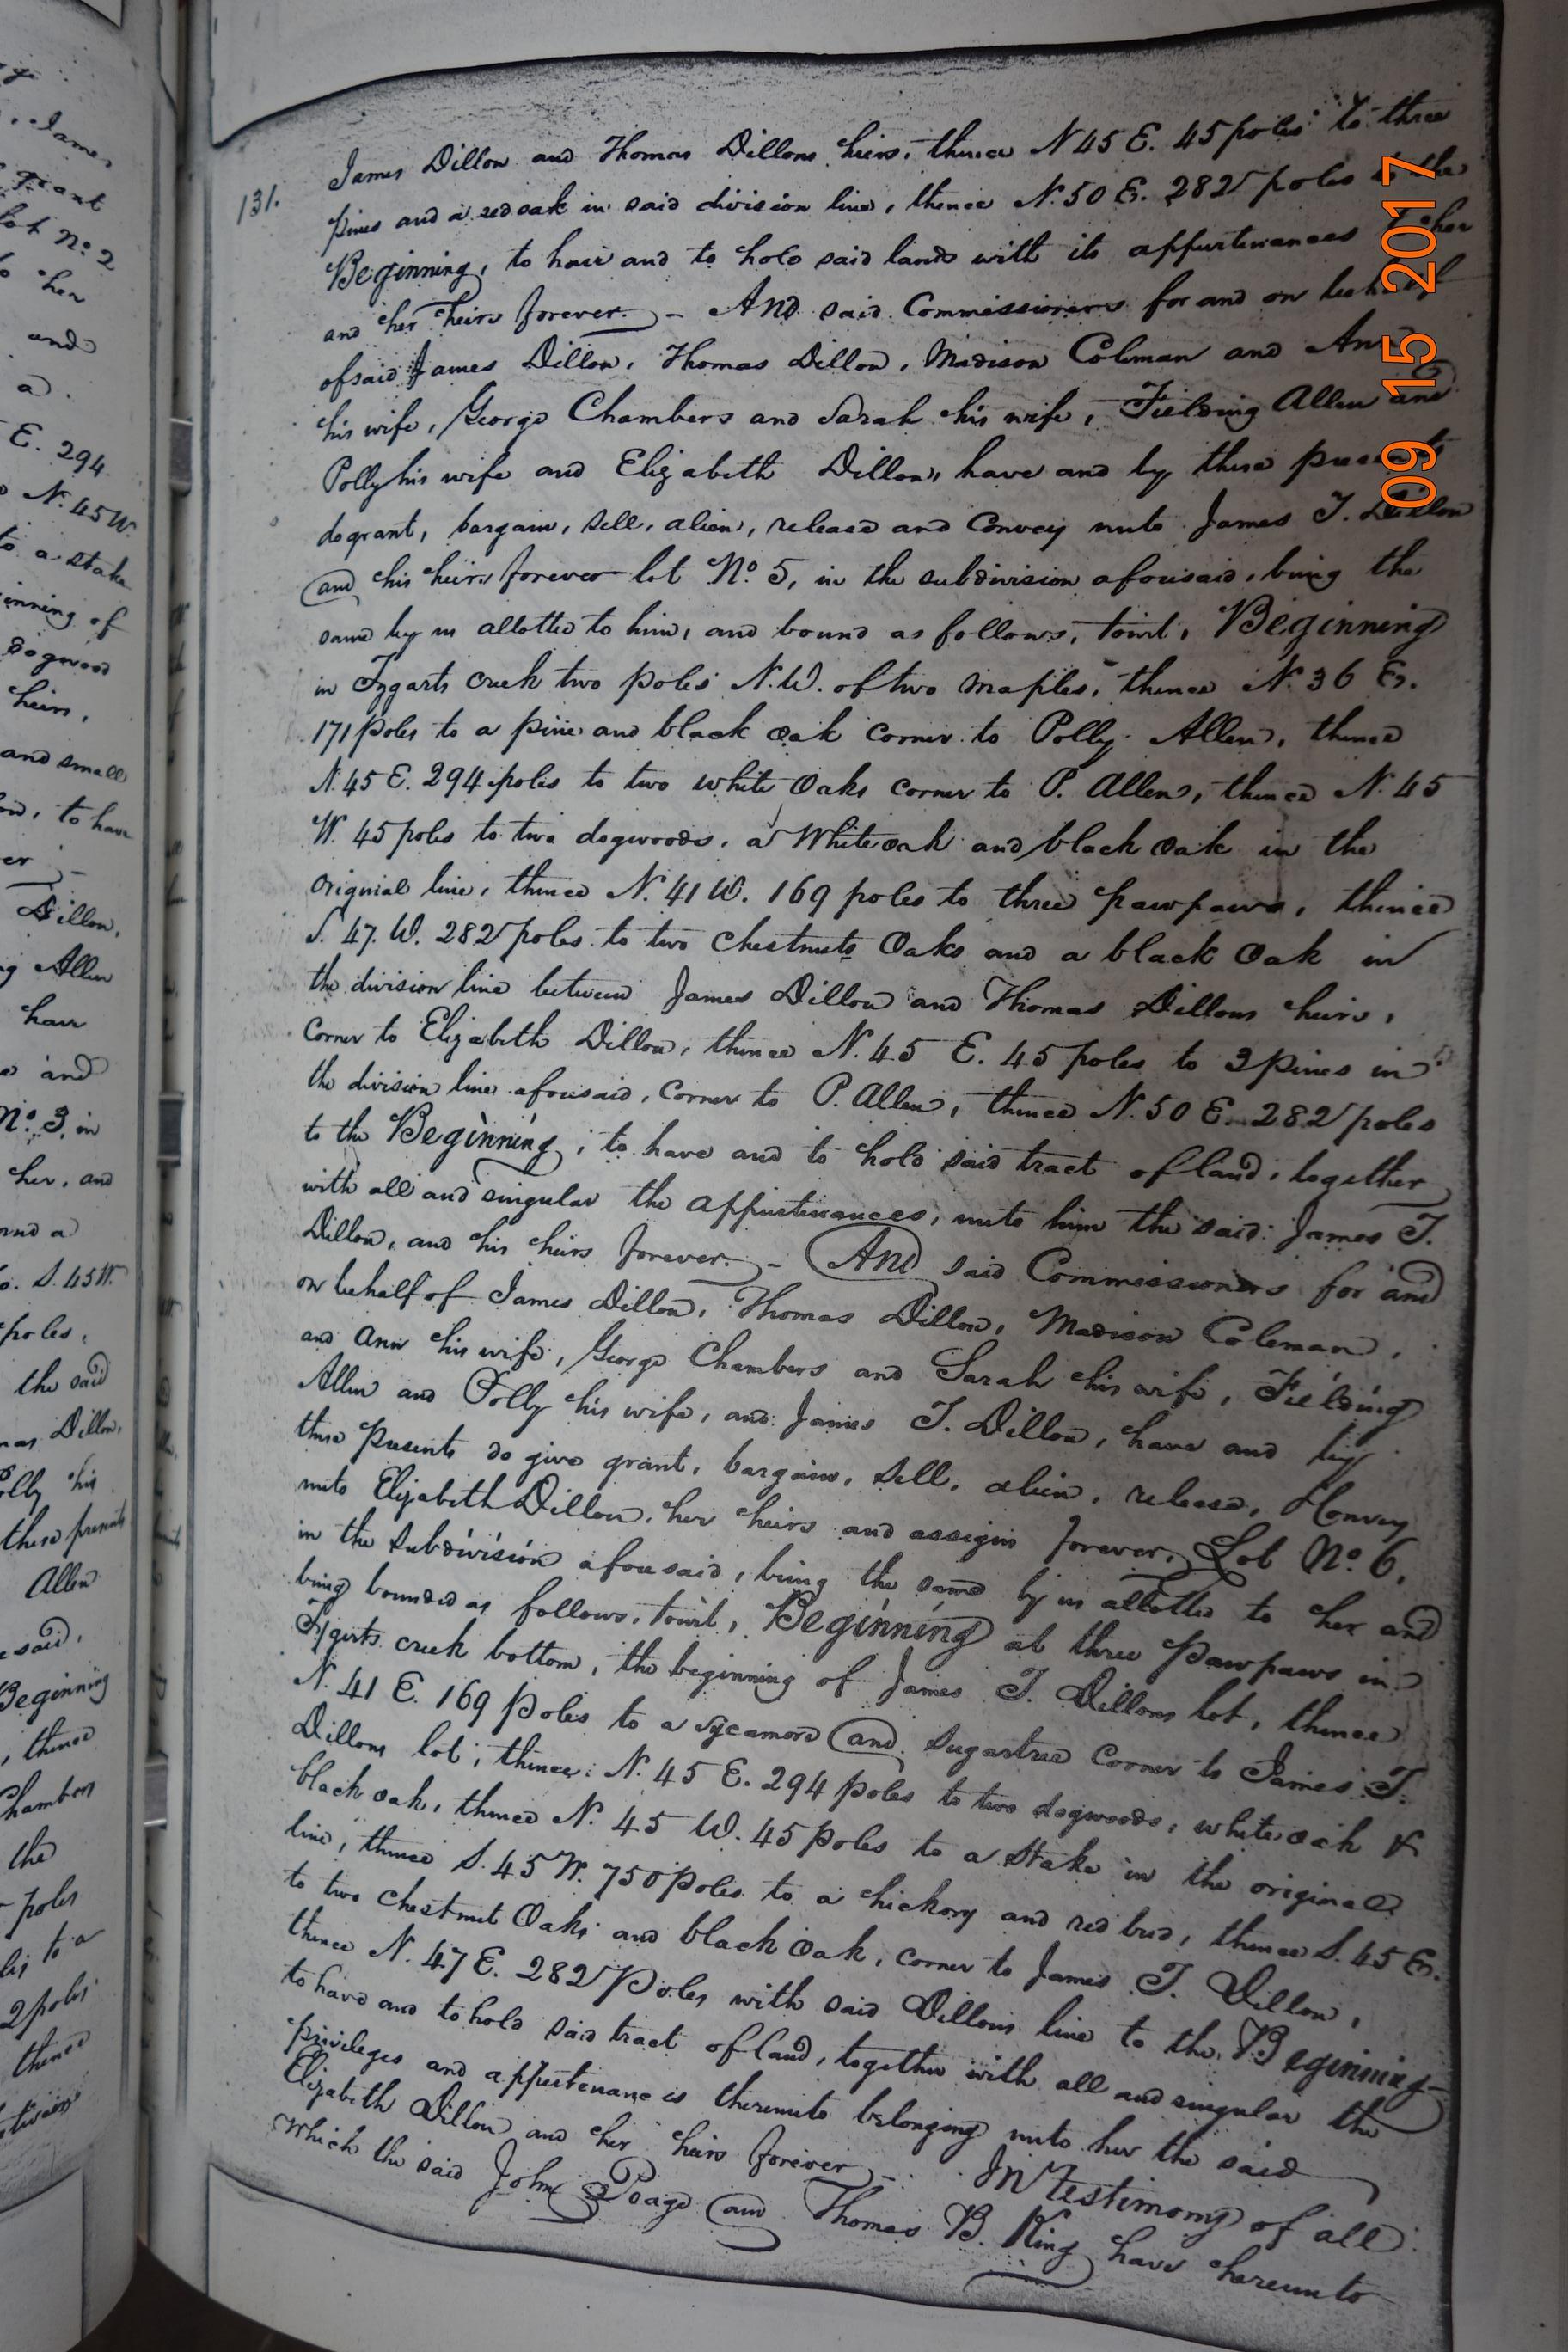 James
grant
lot No 2
her
and
a
E. 294
N. 45 W.
to a stake
inning of
Dogwood
heirs,
and small
to have
er
Dillon,
Allen
have
and
No 3, in
her, and
and a
S. 45 W.
poles,
the said
Dillon,
Polly his
these presents
Allen
said,
Beginning
, thence
Chambers
the
poles
to a
2 poles
thence
131.
James Dillon and Thomas Dillons heirs, thence N 45 E. 45 poles to three
pines and a red oak in said division line, thence N. 50 E. 282 poles to the
Beginning, to have and to hold said lands with its appurtenances to her
and her heirs forever. – And said Commissioners for and on behalf
of said James Dillon, Thomas Dillon, Madison Coleman and Ann
his wife, George Chambers and Sarah his wife, Fielding Allen and
Polly his wife and Elizabeth Dillon, have and by these presents
do grant, bargain, sell, alien, release and Convey unto James T. Dillon
and his heirs forever lot No. 5, in the subdivision aforesaid, being the
same by us allotted to him, and bound as follows, towit, Beginning
in Tygarts creek two poles N.W. of two maples, thence N. 36 E.
171 poles to a pine and black oak corner to Polly Allen, thence
N. 45 E. 294 poles to two white Oaks corner to P. Allen, thence N. 45
W. 45 poles to two dogwoods, a White oak and black oak in the
original line, thence N. 41 W. 169 poles to three pawpaws, thence
S. 47. W. 282 poles to two chestnuts Oaks and a black Oak in
the division line between James Dillon and Thomas Dillons heirs,
Corner to Elizabeth Dillon, thence N. 45 E. 45 poles to 3 pines in
the division line aforesaid, corner to P. Allen, thence N. 50 E. 282 poles
to the Beginning, to have and to hold said tract of land, together
with all and singular the appurtenances, unto him the said James T.
Dillon, and his heirs forever. – And said Commissioners for and
on behalf of James Dillon, Thomas Dillon, Madison Coleman,
and Ann his wife, George Chambers and Sarah his wife, Fielding
Allen and Polly his wife, and James T. Dillon, have and by
these presents do give grant, bargain, sell, alien, release, Convey
unto Elizabeth Dillon, her heirs and assigns forever, Lot No. 6,
in the subdivision aforesaid, being the same by us allotted to her and
being bounded as follows, towit, Beginning at three pawpaws in
Tygerts creek bottom, the beginning of James T. Dillons lot, thence
N. 41 E. 169 poles to a sycamore and sugartree corner to James T.
Dillons lot, thence N. 45 E. 294 poles to two dogwoods, white oak &
black oak, thence N. 45 W. 45 poles to a stake in the original
line, thence S. 45 W. 750 poles to a hickory and red bud, thence S. 45 E.
to two chestnut Oaks and black oak, corner to James T. Dillon,
thence N. 47 E. 282 Poles with said Dillons line to the Beginning–
to have and to hold said tract of land, together with all and singular the
privileges and appurtenances thereunto belonging unto her the said
Elizabeth Dillon and her heirs forever – . In testimony of all
which the said John Poage and Thomas B. King have hereunto
09 15 2017